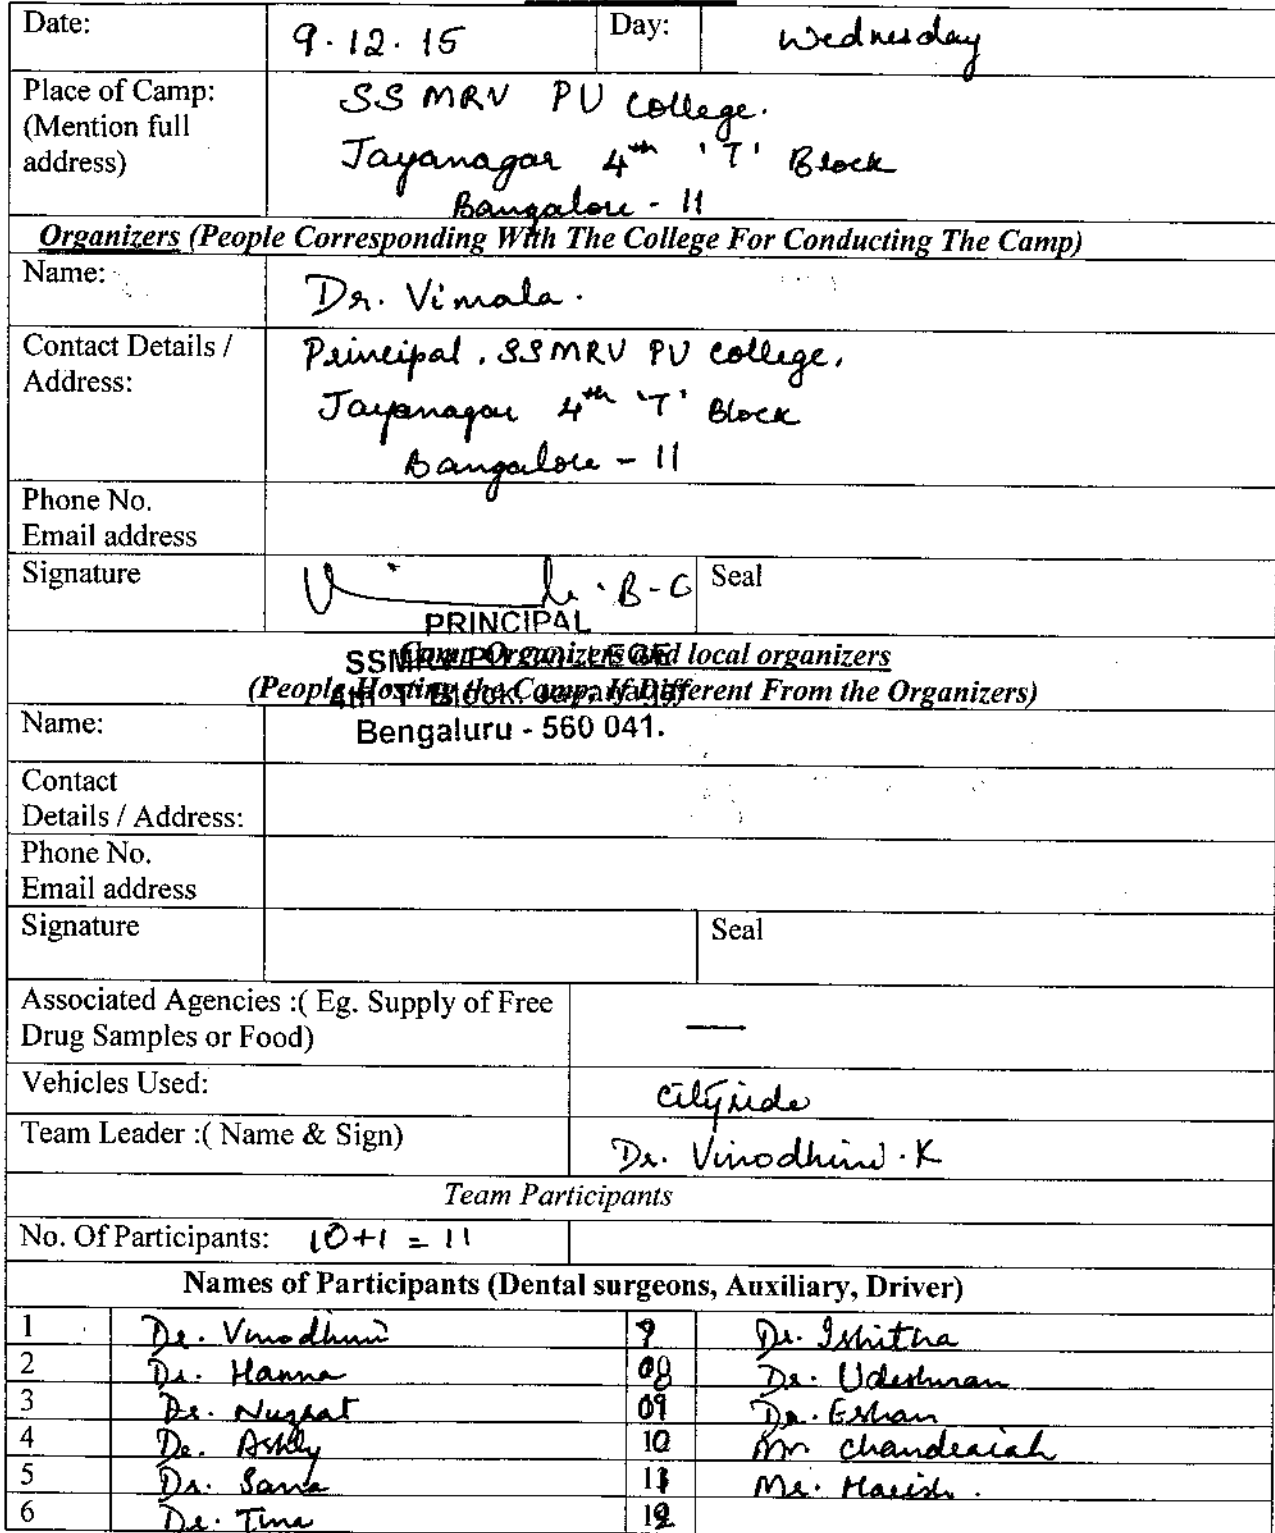 Date: 9.12.15 Day: Wednesday
Place of Camp: SSMRV PU College.
(Mention full Jayanagar 4th 'T' Block
address) Bangalore - 11
Organizers (People Corresponding With The College For Conducting The Camp)
Name: Dr. Vimala.
Contact Details / Principal, SSMRV PU College,
Address: Jayanagar 4th 'T' Block
Bangalore - 11
Phone No.
Email address
Signature B-G Seal
PRINCIPAL
SSMRV PU COLLEGE
Camp Organizers and local organizers
4th 'T' Block, Jayanagar
(People Hosting the Camp, If Different From the Organizers)
Name: Bengaluru - 560 041.
Contact
Details / Address:
Phone No.
Email address
Signature Seal
Associated Agencies :( Eg. Supply of Free
Drug Samples or Food) —
Vehicles Used: Cityride
Team Leader :( Name & Sign) Dr. Vinodhini.K
Team Participants
No. Of Participants: 10+1 = 11
Names of Participants (Dental surgeons, Auxiliary, Driver)
1 Dr. Vinodhini 7 Dr. Ishitha
2 Dr. Hanna 08 Dr.
3 Dr. Nuzhat 09 Dr. Eshan
4 Dr. Ashly 10 Mr Chandraiah
5 Dr. Sana 11 Mr. Harish.
6 Dr. Tina 12